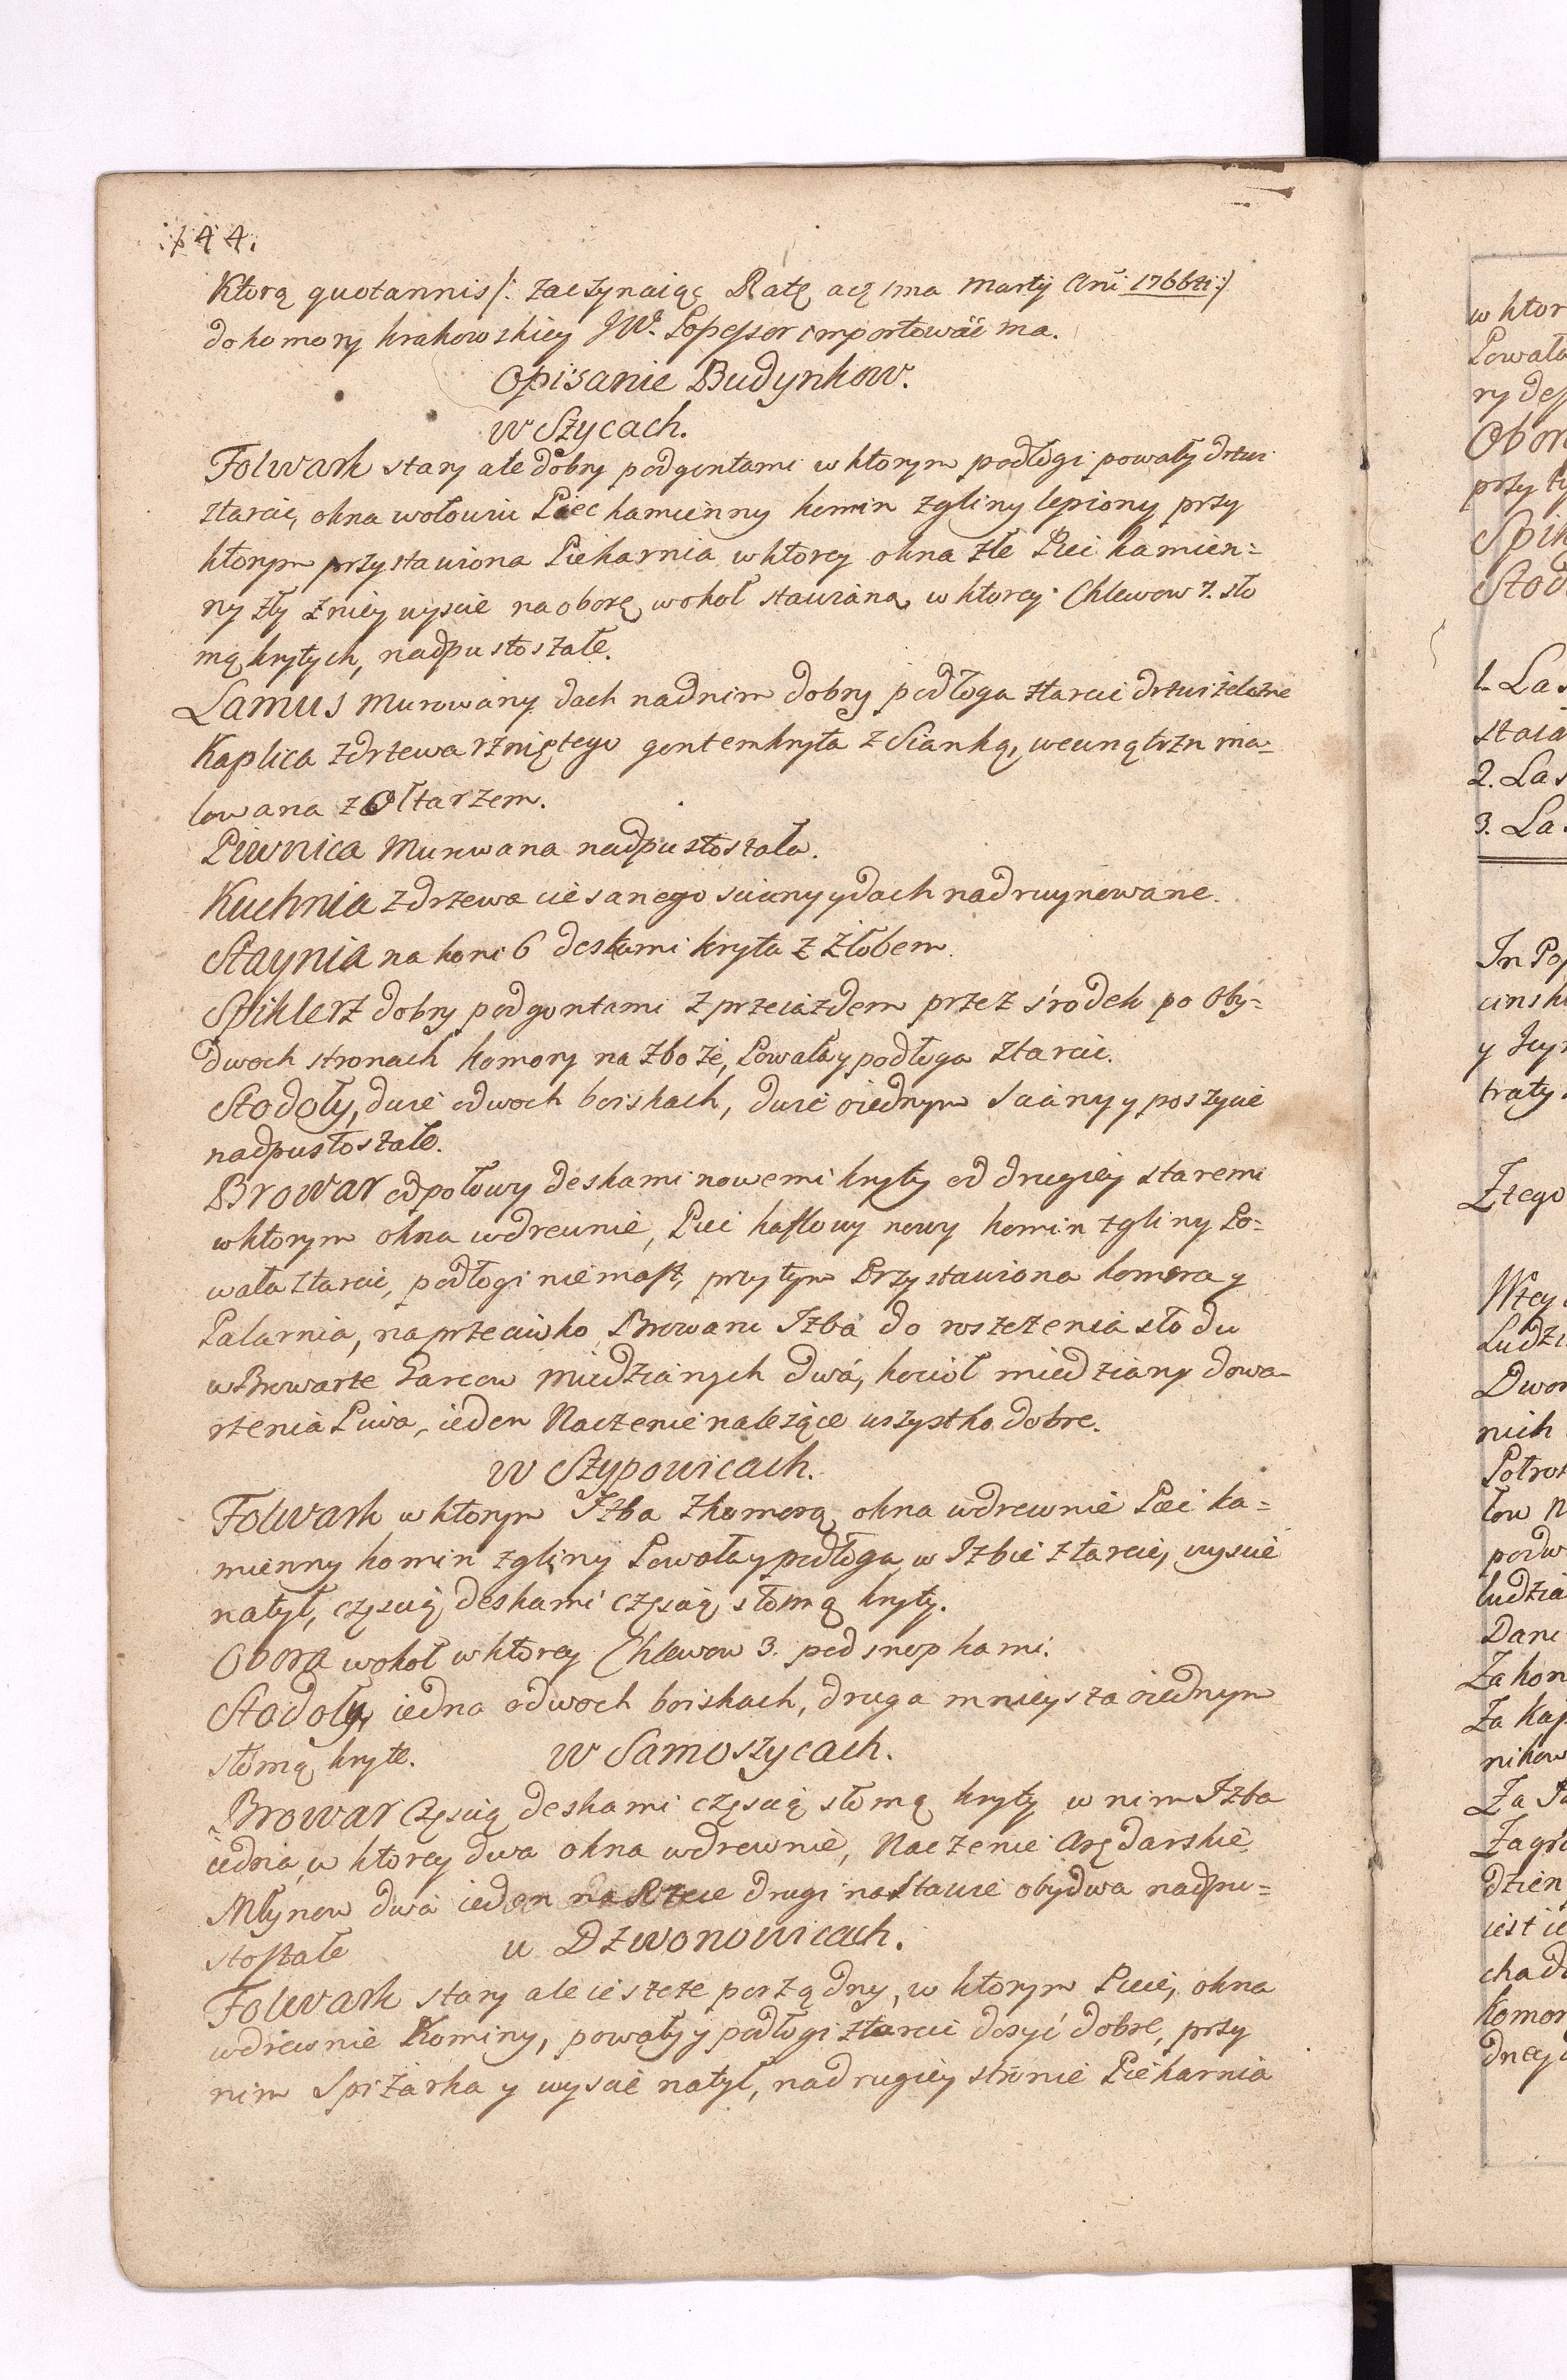 144.
Ktorą quotannis /: zaczynaiąc Ratę a 1ma Martij Ani 1766ti :/
do komory krakowskiey JW. Possessor importować ma.
Opisanie Budynkow.
w Szycach.
Folwark stary ale dobry pod gontami w ktorym podłogi powały drzwi
ztarcic, okna w ołowiu Piec kamienny komin z gliny lepiony przy
ktorym przystawiona Piekarnia w ktorey okna złe Piec kamien=
ny zły z niey wyscie na oborę wokoł stawianą w ktorey Chlewow 7. sło
mą krytych, nadpustoszałe.
Lamus murowany dach nad nim dobry podłoga ztarcic drzwi żelazne
Kaplica z drzewa rzniętego gontem kryta z Sianką, wewnątrzn ma=
lowana z Ołtarzem.
Piwnica Murowana nadpustoszała.
Kuchnia z drzewa ciesanego sciany y dach nadruynowane.
Staynia na koni 6 deskami kryta z żłobem.
Spiklerz dobry pod gontami z przeciazdem przez środek po Oby=
dwoch stronach komory na zboże, Powała y podłoga ztarcic.
Stodoły, dwie o dwoch boiskach, dwie o iednym Sciany y poszycie
nadpustoszałe.
Browar od połowy deskami nowemi kryty od drugiey staremi
w ktorym okna w drewnie, Piec kaflowy nowy komin z gliny Po=
wała ztarcic, podłogi niemasz, przytym Przystawiona komora y
Palarnia, naprzeciwko Browaru Izba do roszczenia słodu
w Browarze Garcow miedzianych dwa, kocioł miedziany do wa-
rzenia Piwa, ieden Naczenie należące wszystko dobre.
w Szypowicach.
Folwark w ktorym Izba z komorą okna w drewnie Piec ka=
mienny komin z gliny Powała y podłoga w Izbie ztarcic, wyscie
na tył, częscią deskami częscią słomą kryty.
Obora wokoł w ktorey Chlewow 3. pod snopkami.
Stodoły, iedna o dwoch boiskach, druga mnieysza o iednym
słomą kryte.
w Samoszycach.
Browar Częscią deskami częscią słomą kryty w nim Izba
iedna, w ktorey dwa okna w drewnie, Naczenie Arędarskie.
Młynow dwa ieden na Rzece drugi na Stawie obydwa nadpu=
stoszałe
w Dzwonowicach.
Folwark stary ale ieszcze porządny, w ktorym Piece, okna
w drewnie Kominy, powały y podłogi ztarcic dosyć dobre, przy
nim Spiżarka y wyscie na tył, na drugiey stronie Piekarnia